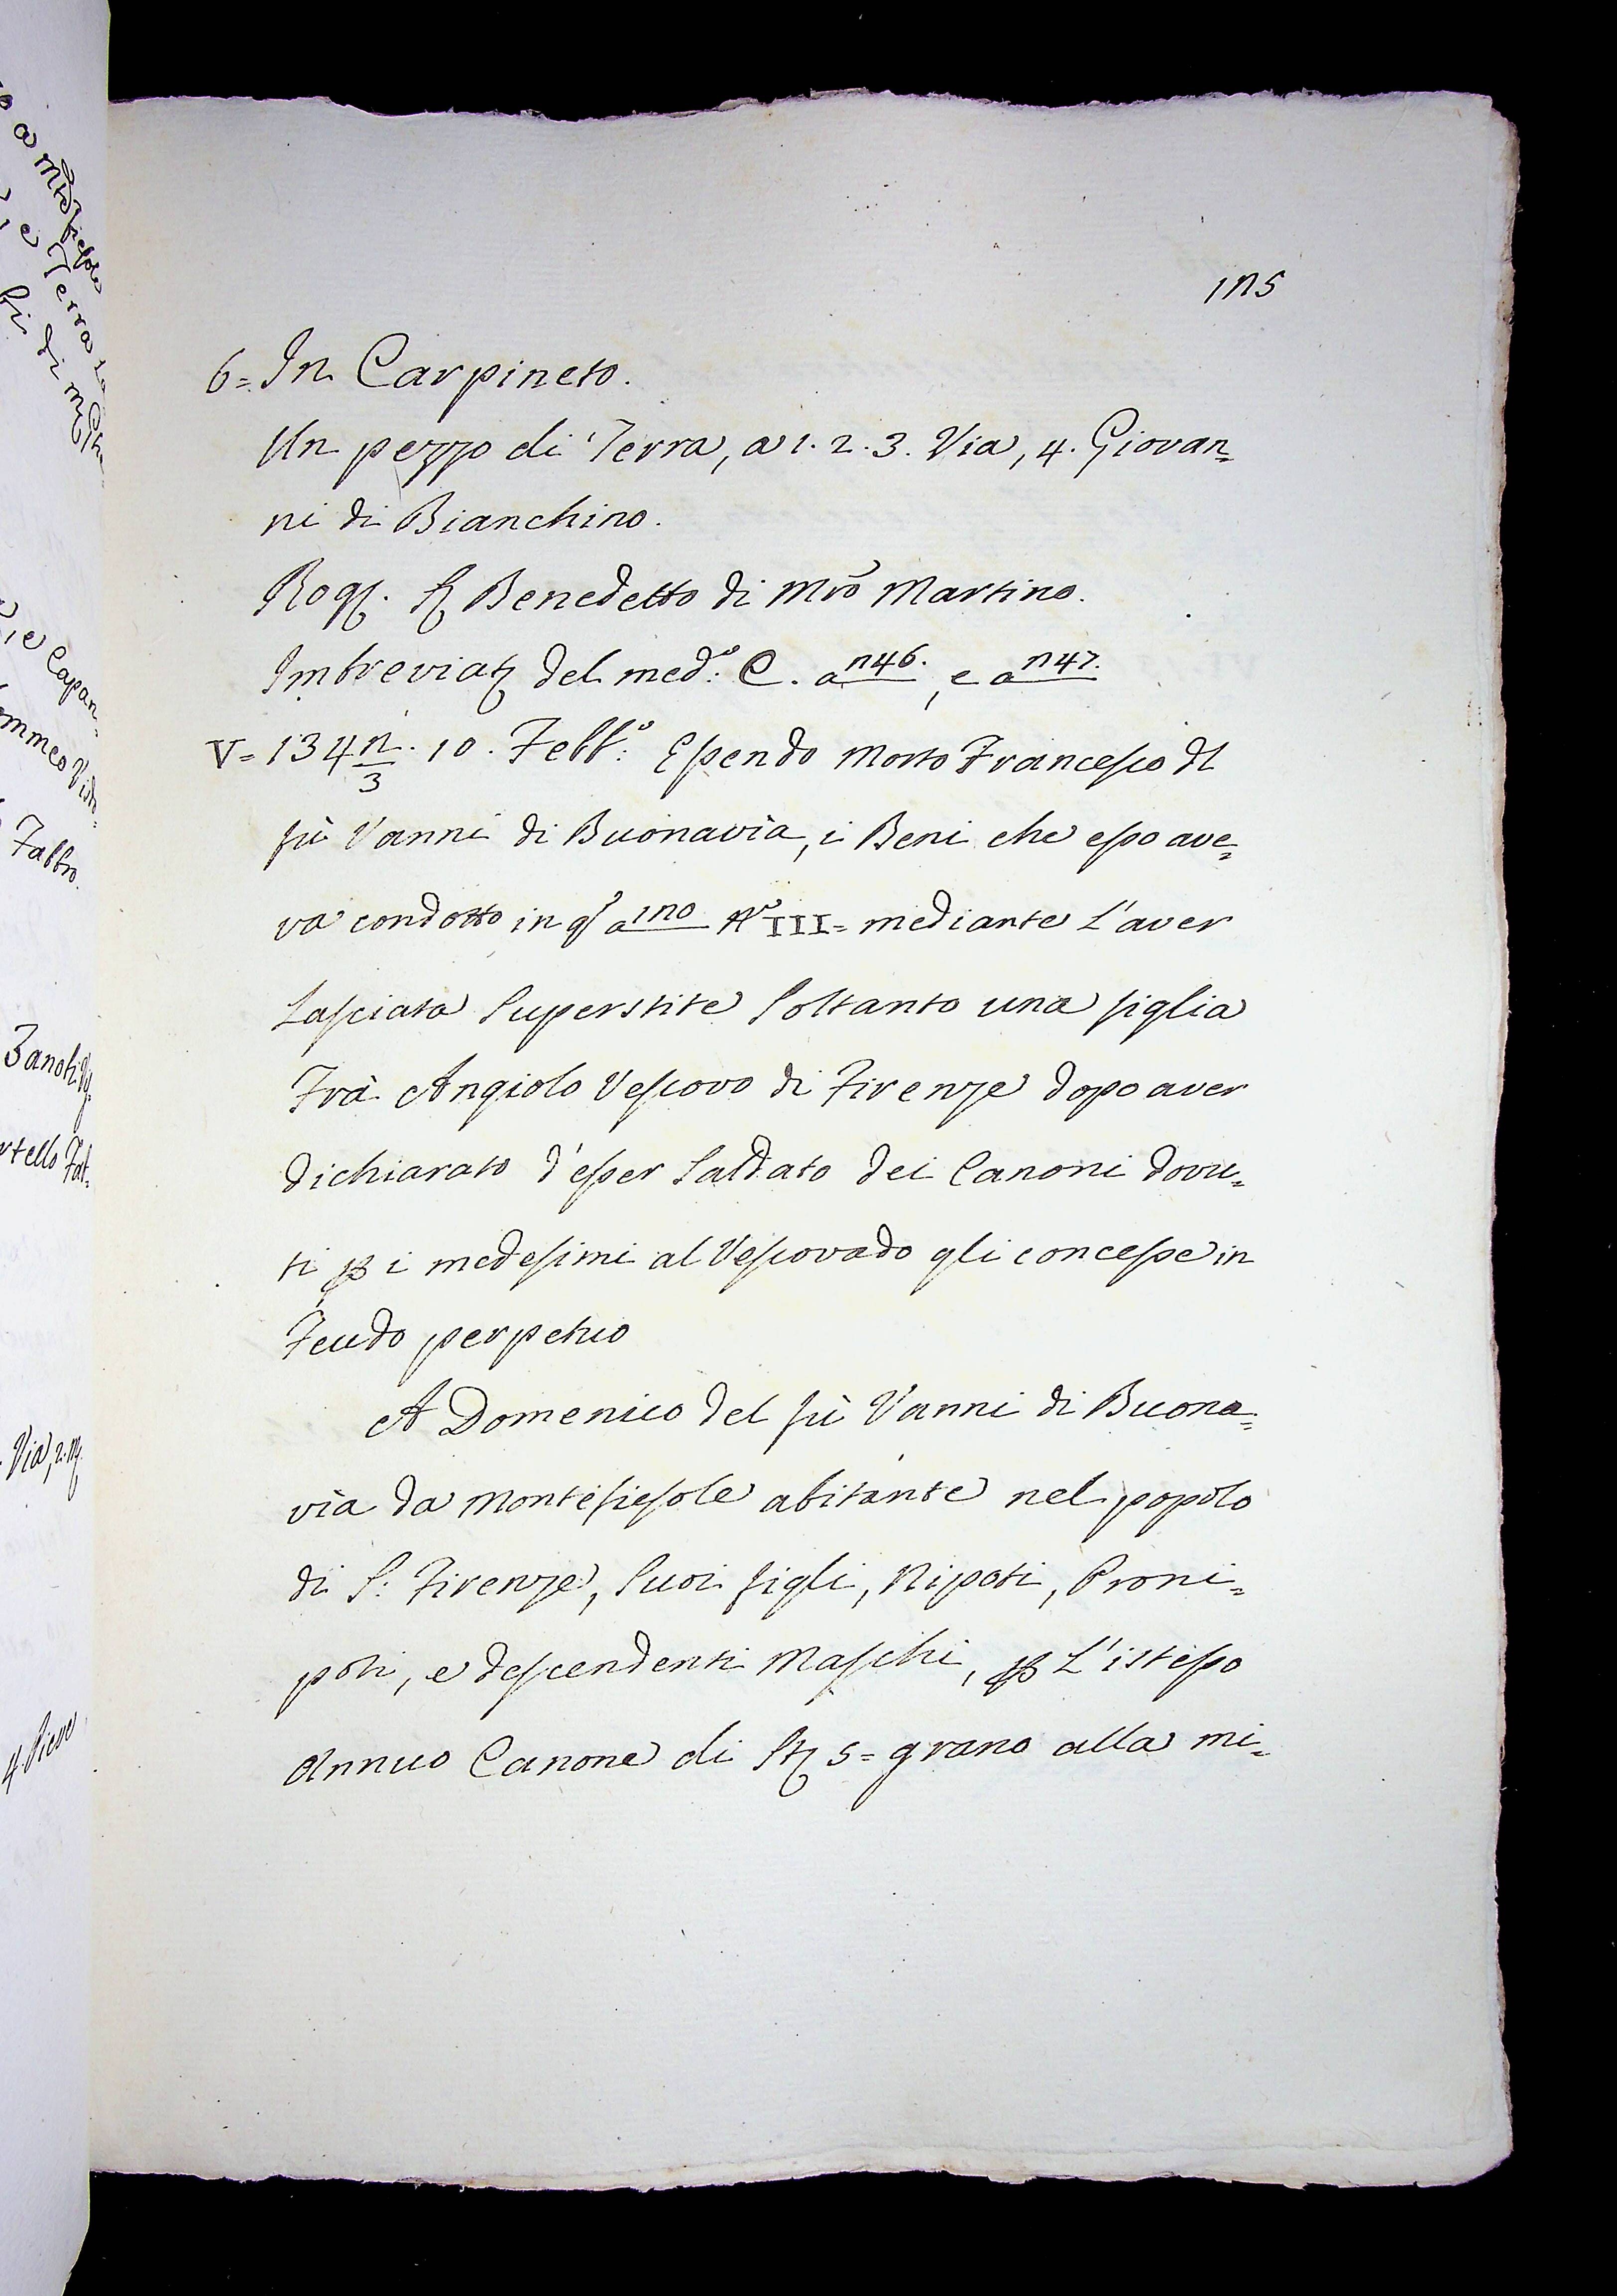 115
6= In Carpineto.
Un pezzo di Terra, a 1. 2. 3. Via, 4. Giovan=
ni di Bianchino.
Rog. S. Benedetto di Mro Martino.
Imbreviat. del med.o C. a 146. e a 147.
V= 1341/3. 10. Febb.o Essendo morto Francesco del
fù Vanni di Buonavia, i Beni che esso ave=
va condotto in q.o a 110 N.o III= mediante L'aver
Lasciata Superstite Soltanto una figlia
Frà Angiolo Vescovo di Firenze dopo aver
dichiarato d'esser Saldato dei Canoni dovu=
ti p i medesimi al Vescovado gli concesse in
Feudo perpetuo
A Domenico del fù Vanni di Buona=
via da Montefiesole abitante nel popolo
di S: Firenze, Suoi figli, Nipoti, Proni=
poti, e descendenti Maschi, p L'istesso
Annuo Canone di St 5= grano alla mi=